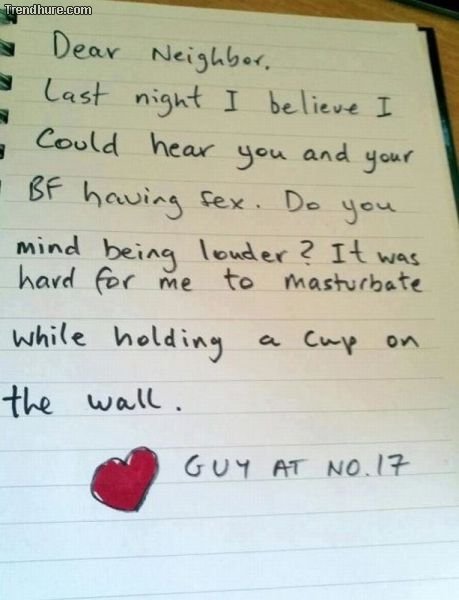 Trendhure.com
Dear Neighbor,
Last night I believe I
Could hear you and your
BF having sex. Do you
mind being louder? It was
hard for me to masturbate
while holding a cup on
the wall.
GUY AT NO.17